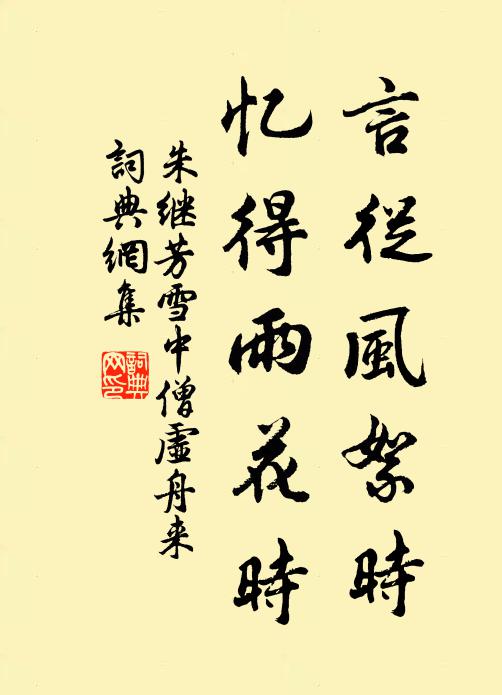 言從風絮時
忆得雨花時
朱继芳雪中僧虛舟来
詞典網集
詞典網印